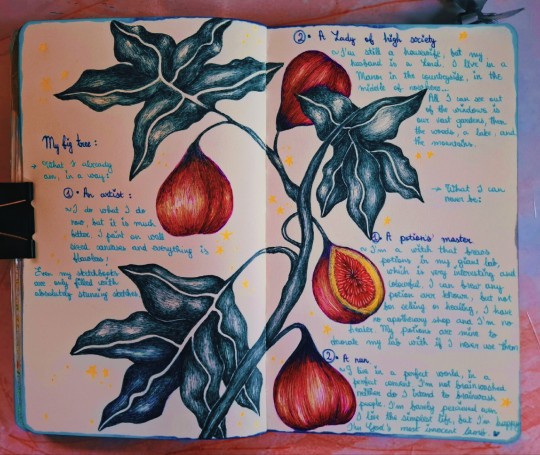 My fig tree :
→ What I already
am, in a way :
① • An artist :
~ I do what I do
now, but it is much
better. I paint on well
sized canvases and everything is
flawless !
Even my sketchbooks
are only filled with
absolutely stunning sketches.
② • A Lady of high society
~ I'm still a housewife, but my
husband is a Lord. I live in a
Manor in the countryside, in the
middle of nowhere...
All I can see out
of the windows is
our vast gardens, then
the woods, a lake, and
the mountains.
→ What I can
never be :
① A potions' master
~ I'm a witch that brews
potions in my giant lab,
which is very interesting and
colourful. I can brew any
potion ever known, but not
for selling or healing, I have
no apothecary shop and I'm no
healer. My potions are mine to
decorate my lab with if I never use them
② • A nun
~ I live in a perfect world, in a
perfect convent. I'm not brainwashed
neither do I intend to brainwash
people. I'm barely perceived even
I live the simplest life, but I'm happy
I'm God's most innocent